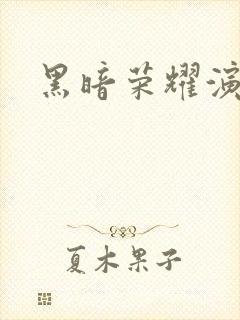 黑暗荣耀演
夏木果子